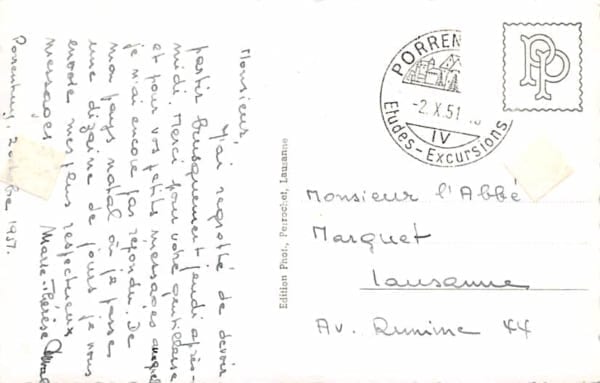 Monsieur,
J'ai regretté de devoir
partir brusquement jeudi après-
midi. Merci pour votre gentillesse
et pour vos petits messages auxquels
je n'ai encore pas répondu. De
mon pays natal où je passe
une dizaine de jours je vous
envoie mes plus respectueux
messages.
Marie-Thérèse
Porrentruy, 2 octobre 1951.
Edition Phot., Perrochet, Lausanne
PORREN
-2.X.51
IV
Etudes-Excursions
PP
Monsieur l'Abbé
Marquet
Lausanne
Av. Rumine 44